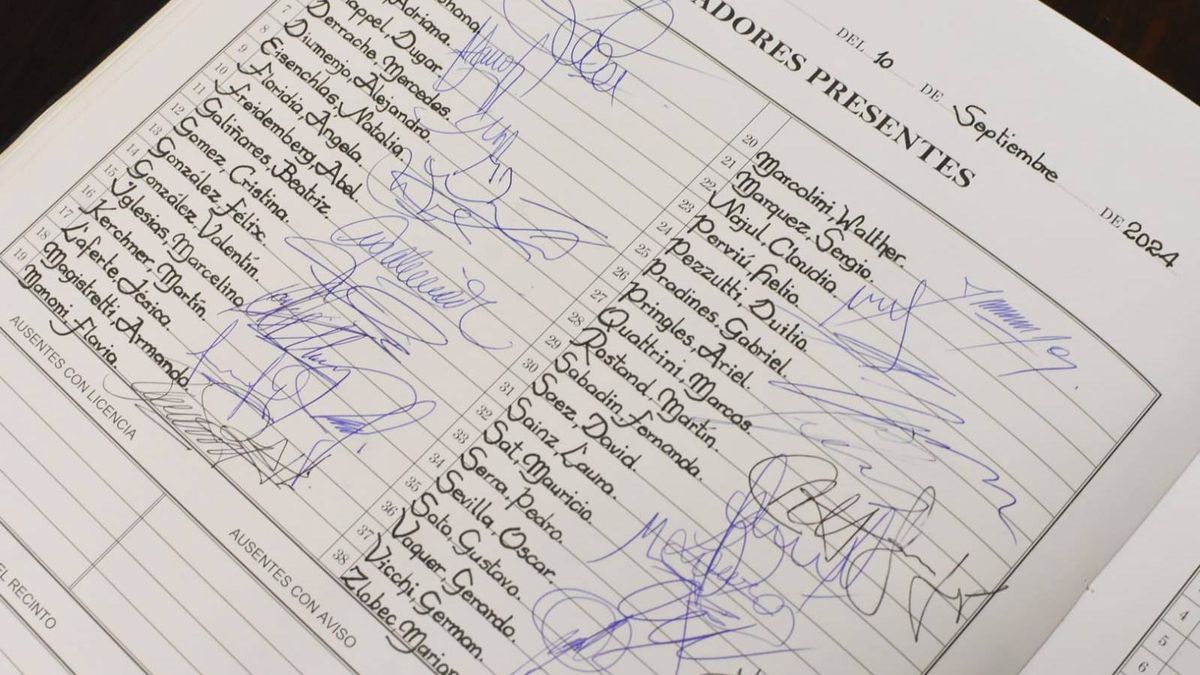 DEL 10 DE Septiembre DE 2024
ADORES PRESENTES
Adriana.
appel, Dugar.
Derrache, Mercedes.
7 Diumenjo, Alejandro.
8 Eisenchlas, Natalia.
9 Floridia, Ángela.
10 Freidemberg, Abel.
11 Galiñares, Beatriz.
12 Gomez, Cristina.
13 González, Félix.
14 González, Valentín.
15 Yglesias, Marcelino.
16 Kerchner, Martín.
17 Laferte, Jesica.
18 Magistretti, Armando.
19 Manoni, Flavia.
20 Marcolini, Walther.
21 Marquez, Sergio.
22 Najul, Claudia.
23 Perviú, Helio.
24 Pezzutti, Duilio.
25 Pradines, Gabriel.
26 Pringles, Ariel.
27 Quattrini, Marcos.
28 Rostand, Martín.
29 Sabadin, Fernanda.
30 Saez, David.
31 Sainz, Laura.
32 Sat, Mauricio.
33 Serra, Pedro.
34 Sevilla, Oscar.
35 Soto, Gustavo.
36 Vaquer, Gerardo.
37 Vicchi, German.
38 Zlobec, Marian
AUSENTES CON LICENCIA
AUSENTES CON AVISO
EL RECINTO
4
5
6